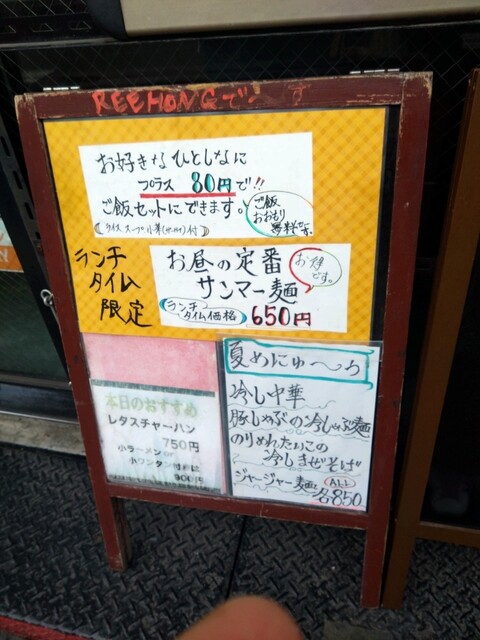 REEHONGで す
お好きなひとしなに
プラス 80円で!!
ご飯セットにできます。
(ライス スープ 小羊(サービス)付)
ご飯
おおもり
無料です。
ランチ
タイム
限定
お昼の定番
サンマー麺
お得
です。
ランチ
タイム価格
650円
本日のおすすめ
レタスチャーハン
750円
小ラーメン or
小ワンタン 付きは
900円
夏めにゅ〜う
冷し中華
豚しゃぶの冷しゃぶ麺
のりめんたいこの
冷しまぜそば
ジャージャー麺
ALL
各850